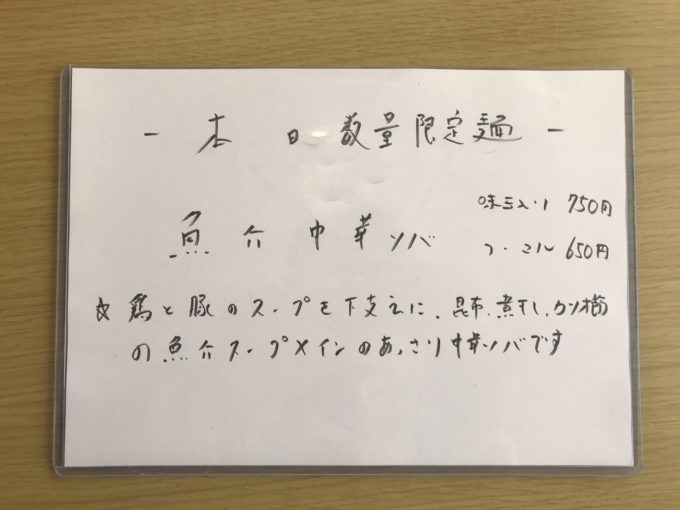 - 本日 数量限定麺 -
味玉入り 750円
魚介中華ソバ
650円
☆鶏と豚のスープを下支えに、昆布、煮干し、カツオ節
の魚介スープメインのあっさり中華ソバです